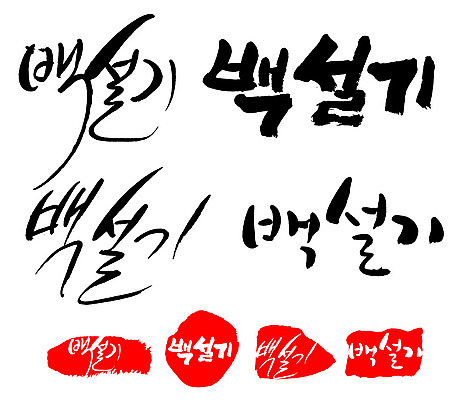 백설기 백설기
백설기 백설기
백설기 백설기 백설기 백설기